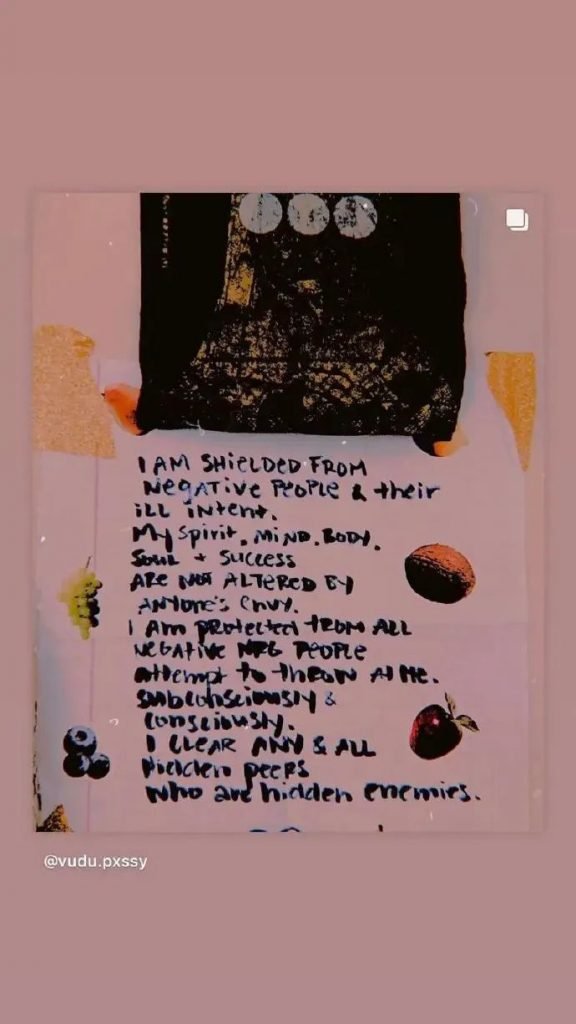 I AM SHIELDED FROM
NEGATIVE PEOPLE & their
ill intent.
My spirit, MIND, BODY,
SOUL + SUCCESS
ARE NOT ALTERED BY
ANYONE'S ENVY.
I AM protected FROM ALL
NEGATIVE NRG PEOPLE
attempt to throw AT ME.
subconsciously &
consciously.
I CLEAR ANY & ALL
hidden peers
who are hidden enemies.
@vudu.pxssy